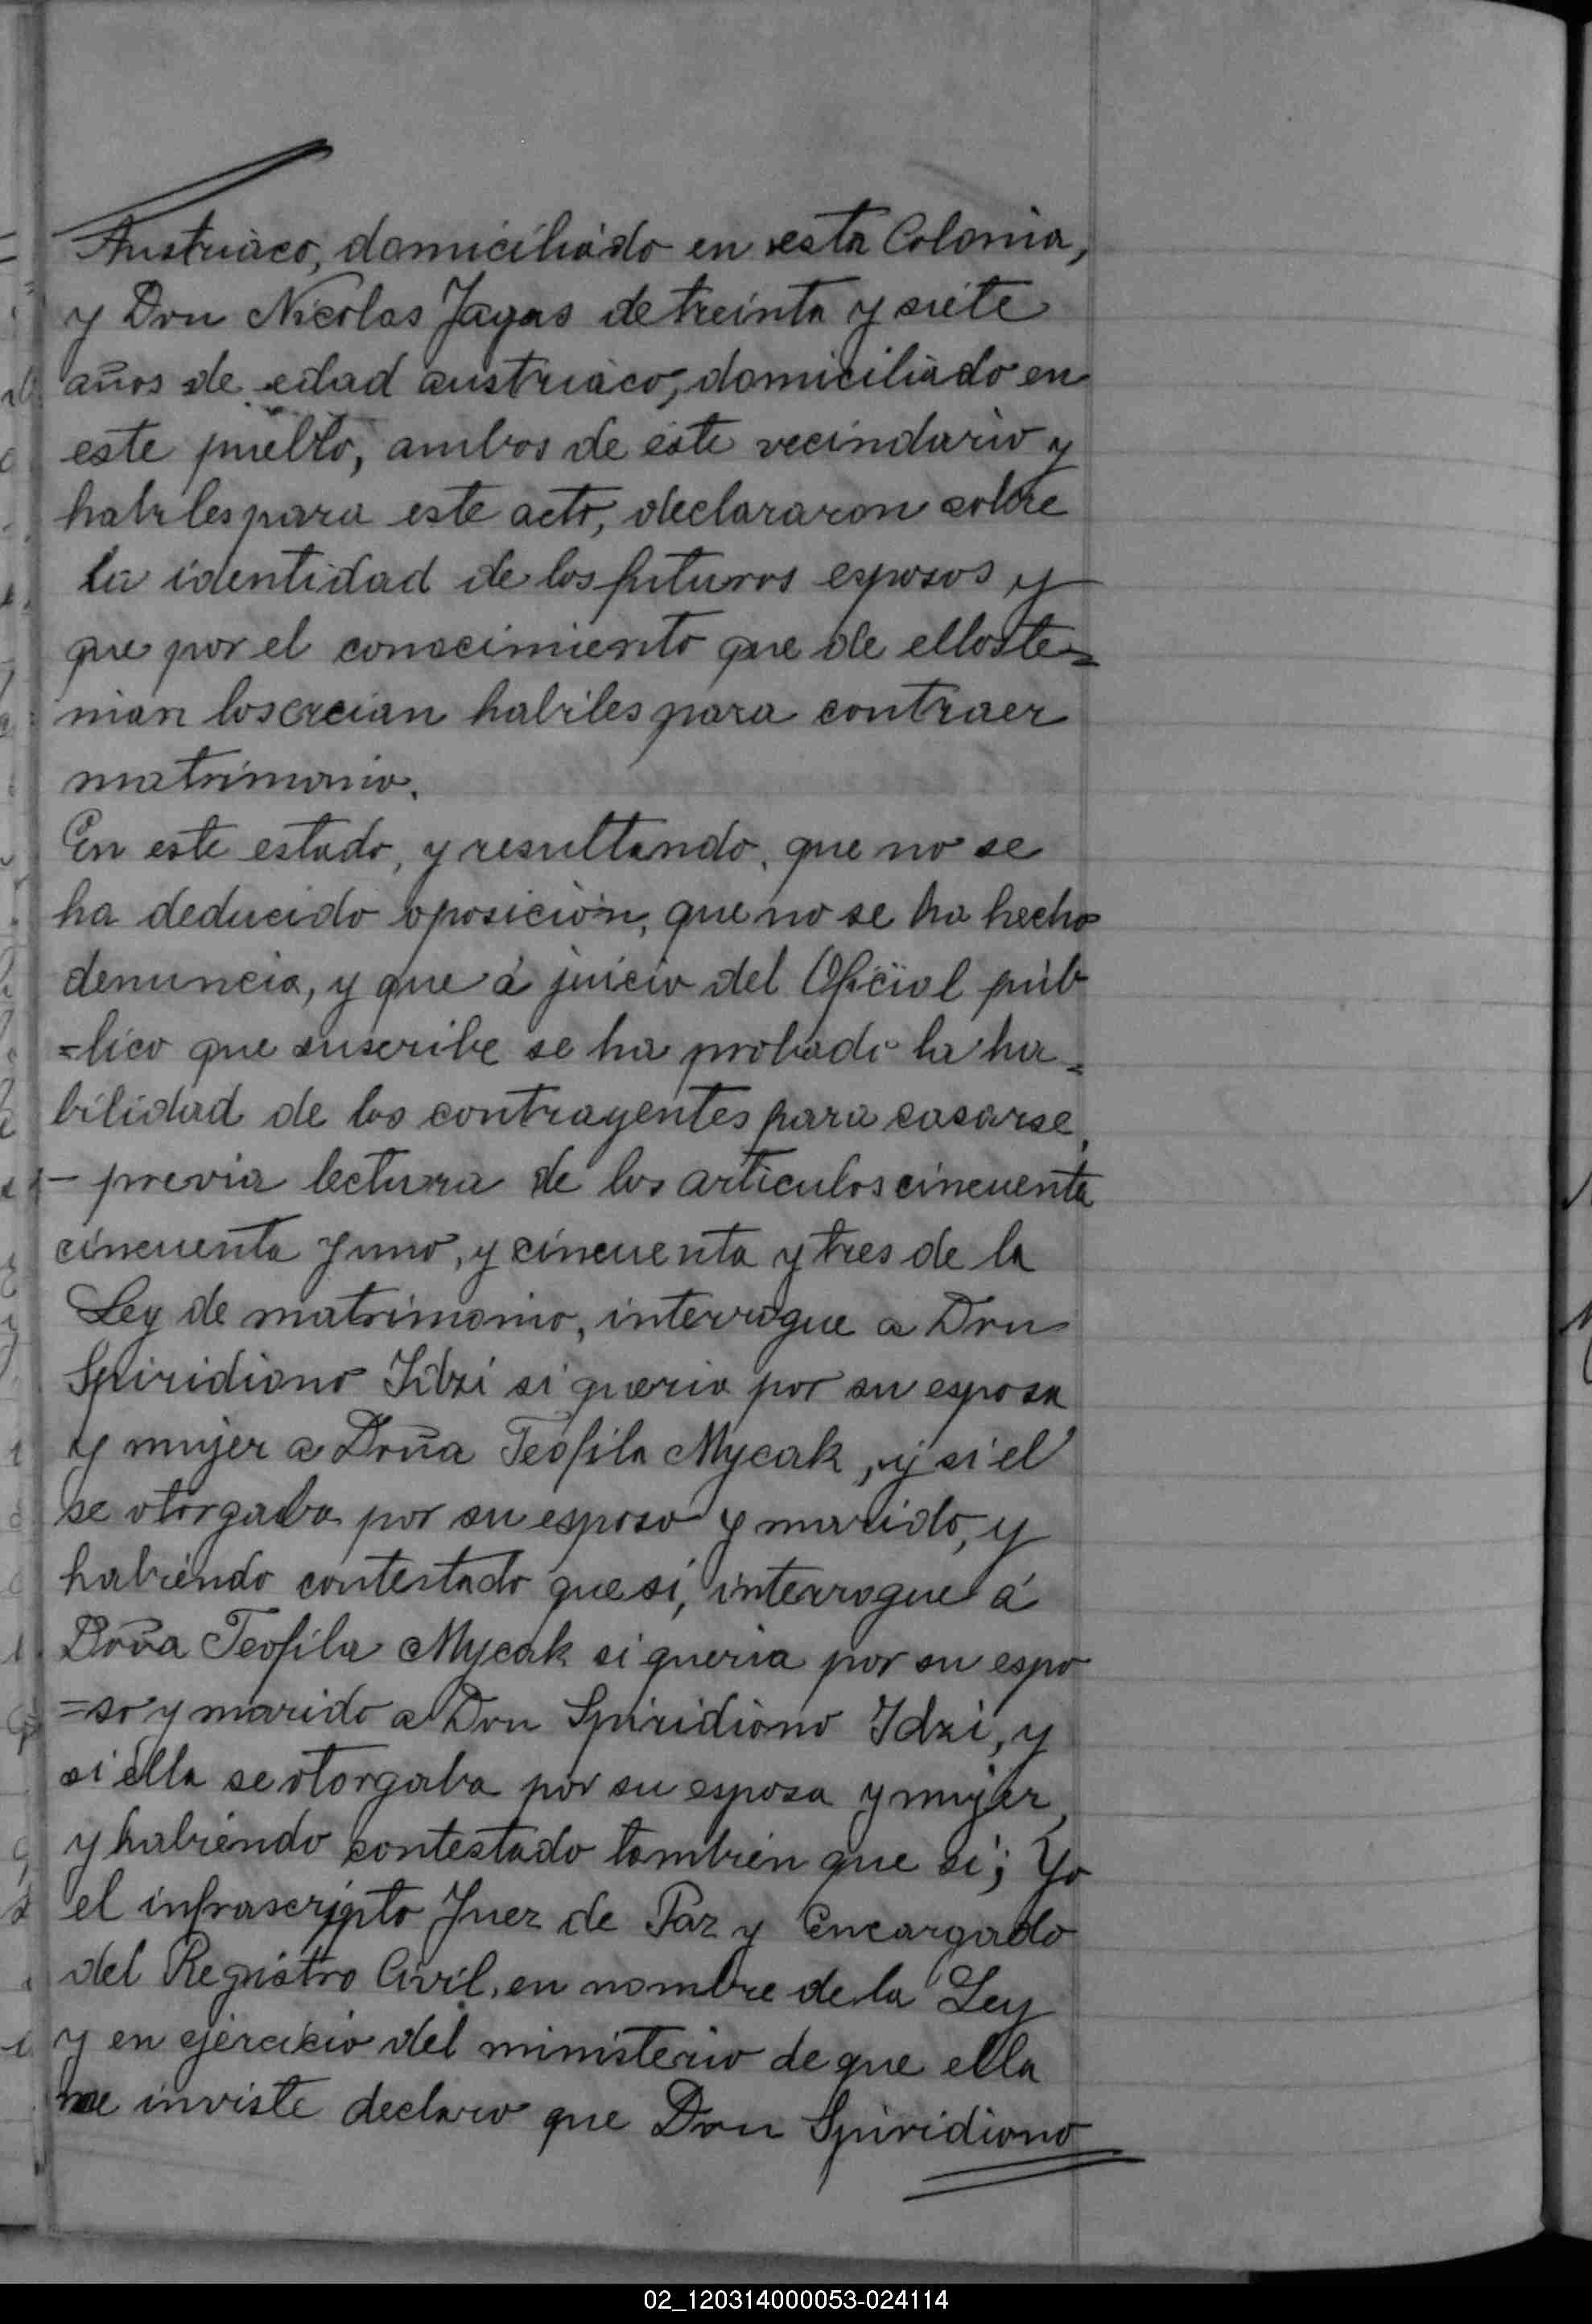 Austriaco, domiciliado en esta Colonia,
y Don Nicolas Jagas de treinta y siete
años de edad austriaco, domiciliado en
este pueblo, ambos de este vecindario y
habiles para este acto, declararon sobre
la identidad de los futuros esposos y
que por el conocimiento que de ellos te=
nian los creian habiles para contraer
matrimonio.
En este estado, y resultando, que no se
ha deducido oposición, que no se ha hecho
denuncia, y que á juicio del Oficial púb
=lico que suscribe se ha probado la ha=
bilidad de los contrayentes para casarse,
– previa lectura de los articulos cincuenta
cincuenta y uno, y cincuenta y tres de la
Ley de matrimonio, interrogue a Don
Spiridiono Idzi si queria por su esposa
y mujer a Doña Teofila Mycak, y si el
se otorgaba por su esposo y marido, y
habiendo contestado que si, interrogue á
Doña Teofila Mycak si queria por su espo
=so y marido a Don Spiridiono Idzi, y
si ella se otorgaba por su esposa y mujer,
y habiendo contestado tambien que si; Yo
el infrascripto Juez de Paz y Encargado
del Registro Civil, en nombre de la Ley
y en ejercicio del ministerio de que ella
me inviste declaro que Don Spiridiono
02_120314000053-024114